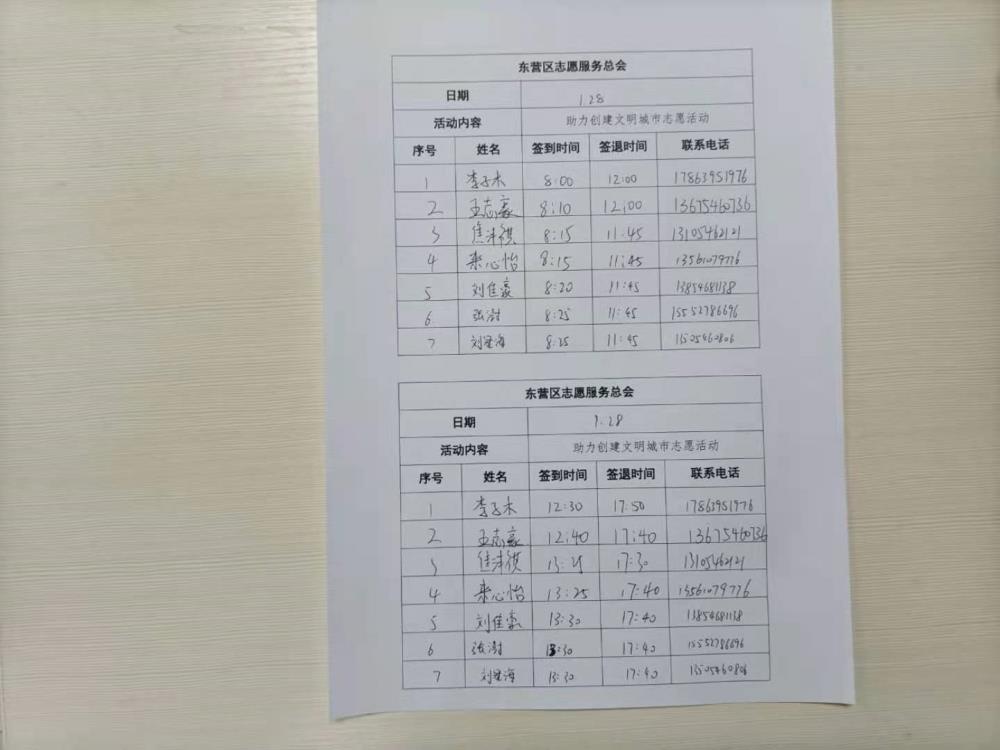 东营区志愿服务总会
日期 1.28
活动内容 助力创建文明城市志愿活动
序号 姓名 签到时间 签退时间 联系电话
1 李子木 8:00 12:00 17863951976
2 王志豪 8:10 12:00 13675460736
3 焦沣祺 8:15 11:45 13105462121
4 来心怡 8:15 11:45 13561079776
5 刘佳豪 8:20 11:45 13854681138
6 张澍 8:25 11:45 15552786696
7 刘星海 8:25 11:45 13505460806
东营区志愿服务总会
日期 1.28
活动内容 助力创建文明城市志愿活动
序号 姓名 签到时间 签退时间 联系电话
1 李子木 12:30 17:50 17863951976
2 王志豪 12:40 17:40 13675460736
3 焦沣祺 13:25 17:30 13105462121
4 来心怡 13:25 17:40 13561079776
5 刘佳豪 13:30 17:40 13854681138
6 张澍 13:30 17:40 15552786696
7 刘星海 13:30 17:40 13505460806